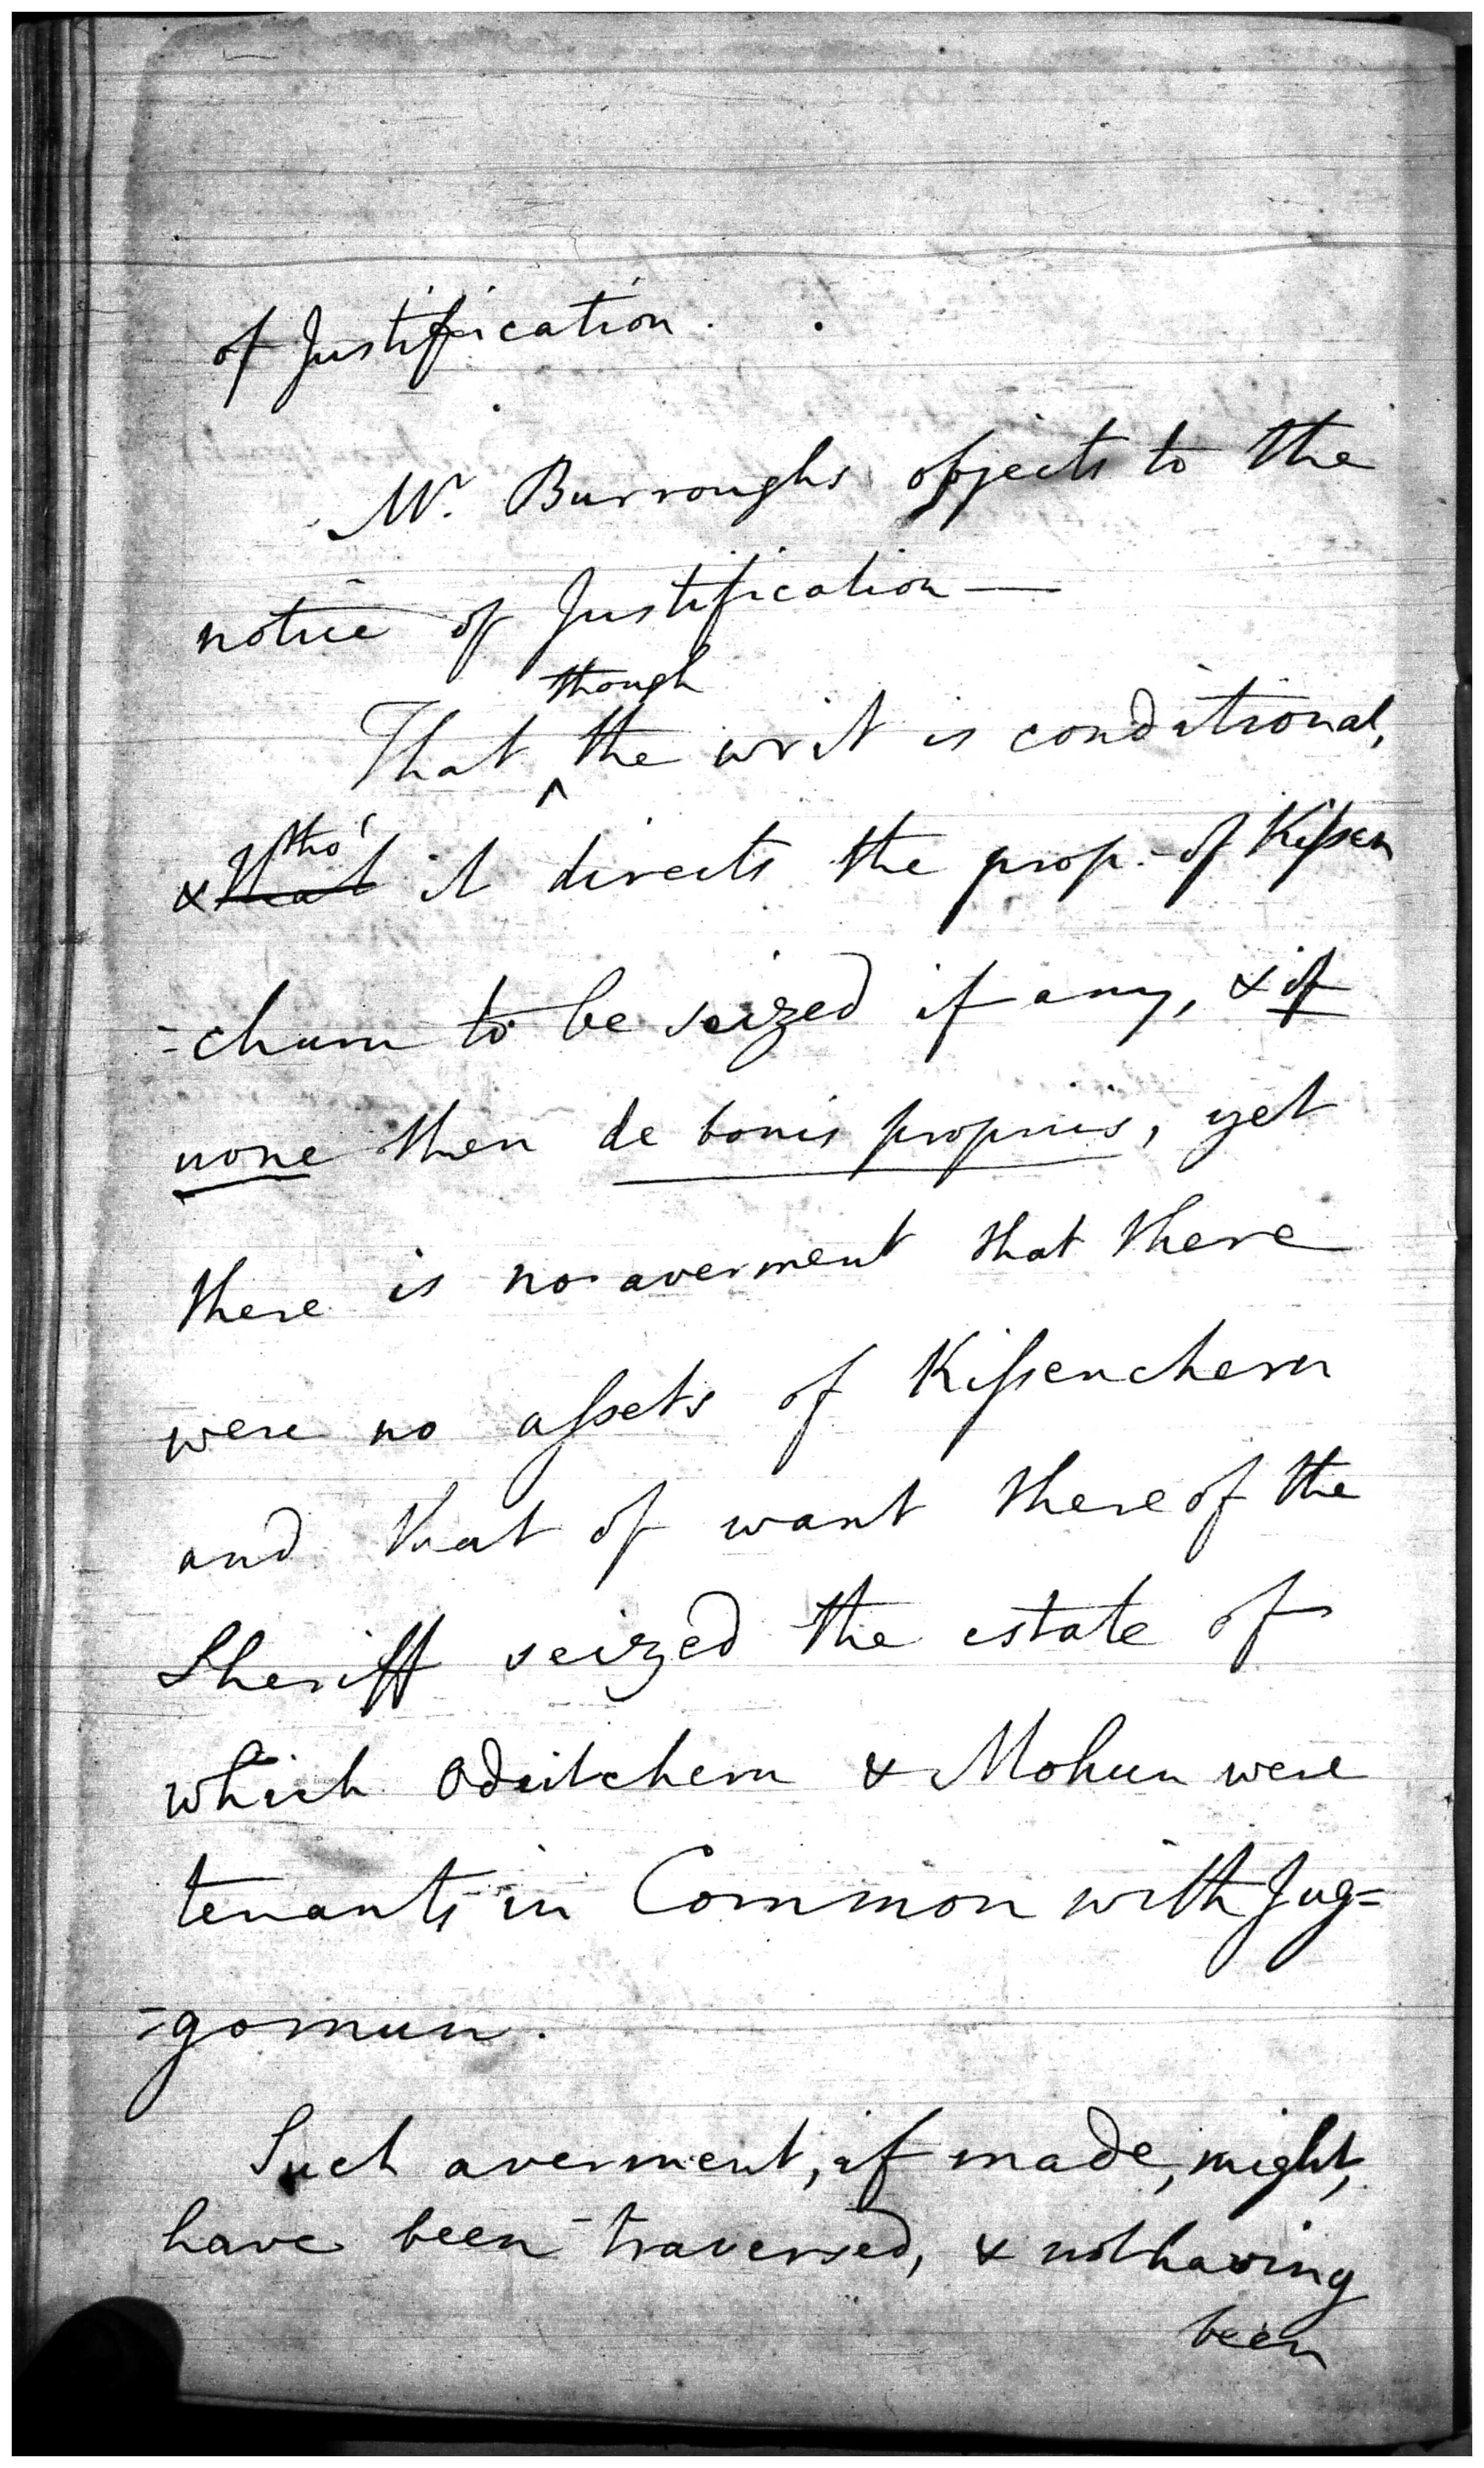 of Justification.
Mr. Burroughs objects to the
notice of Justification —
though
That ^ the writ is conditional,
tho'
& that it directs the prop. of Kissen
-churn to be seized if any, & if
none then de bonis propriis, yet
there is no averment that there
were no assets of Kissenchern
and that of want thereof the
Sheriff seized the estate of
which Odeitchern & Mohun were
tenants in Common with Jug=
=gomun.
Such averment, if made, might,
have been traversed, & not having
been